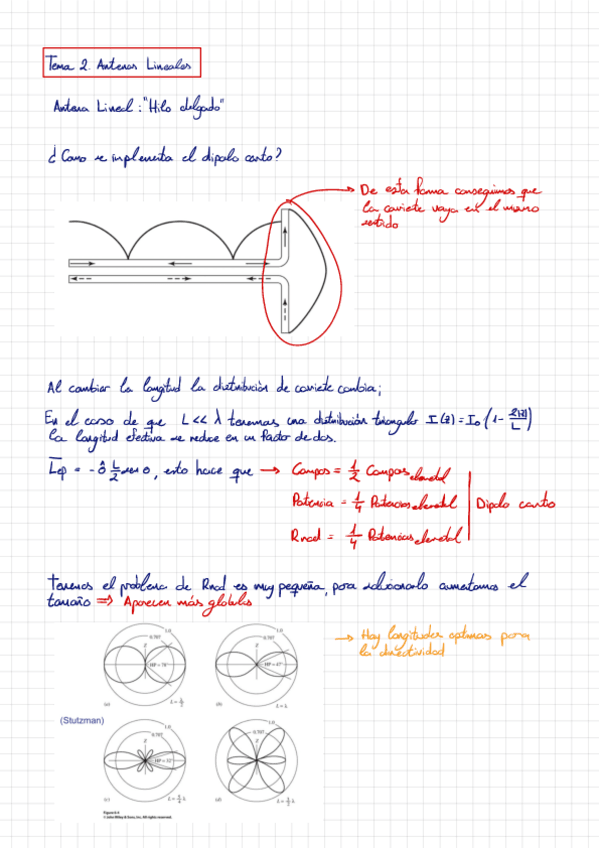 Tema 2. Antenas Lineales
Antena Lineal: "Hilo delgado"
¿Como se implementa el dipolo corto?
De esta forma conseguimos que
la corriente vaya en el mismo
sentido
Al cambiar la longitud la distribución de corriente cambia;
En el caso de que L << λ tenemos una distribución triangular I(z) = I₀ (1 - 2|z|/L)
la longitud efectiva se reduce en un factor de dos.
Lef = -θ̂ L/2 sen θ, esto hace que → Campos = 1/2 Campos elemental
Potencia = 1/4 Potencias elemental
Dipolo corto
Rrad = 1/4 Potencias elemental
Tenemos el problema de Rrad es muy pequeña, para solucionarlo aumentamos el
tamaño => Aparecen más glóbulos
→ Hay longitudes optimas para
la directividad
1.0
0.707
z
HP = 78°
(a)
L = λ/2
1.0
0.707
z
HP = 47°
(b)
L = λ
(Stutzman)
1.0
0.707
z
HP = 32°
(c)
1.0
0.707
z
(d)
L = 3/2 λ
© John Wiley & Sons, Inc. All rights reserved.